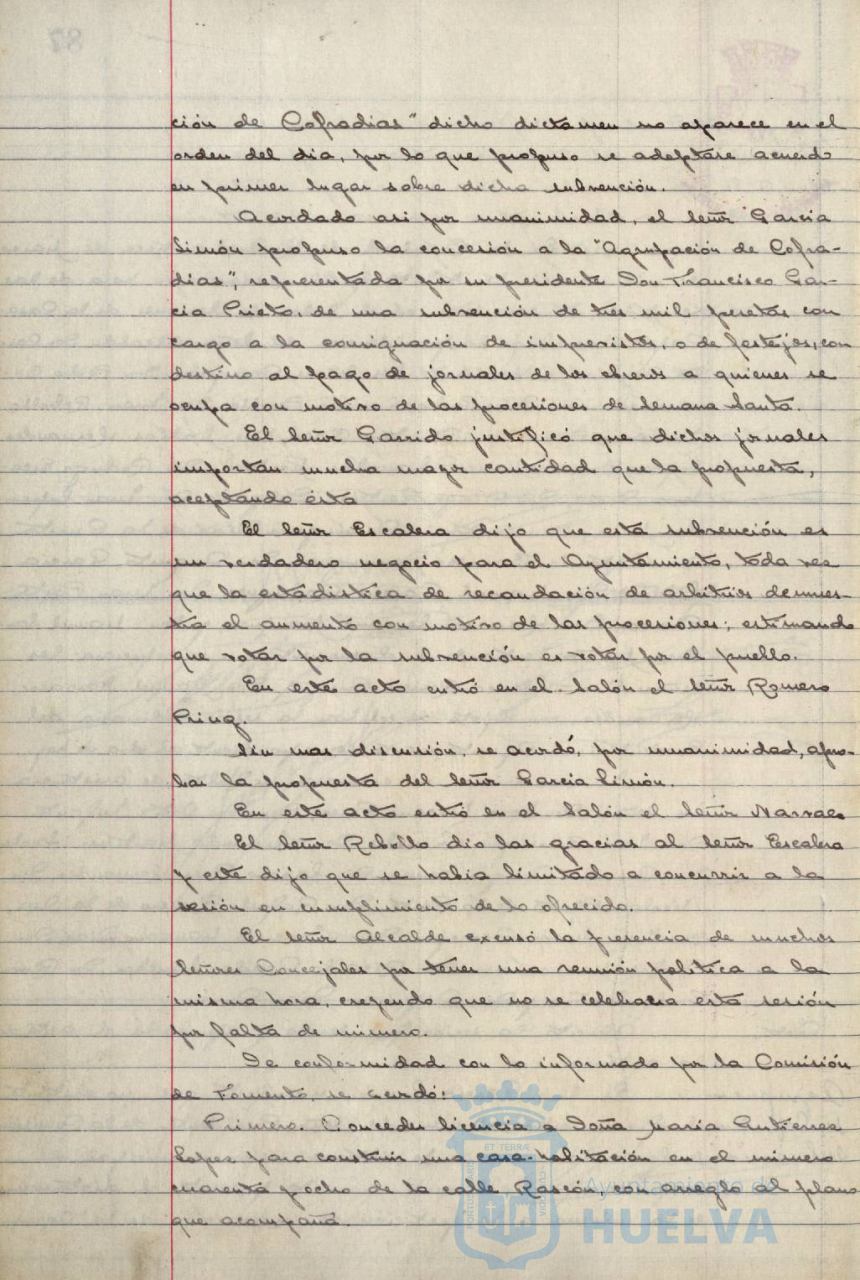 ción de Cofradias" dicho dictamen no aparece en el
orden del dia, por lo que propuso se adoptase acuerdo
en primer lugar sobre dicha subvención.
Acordado asi por unanimidad, el señor Garcia
Simón propuso la concesión a la "Agrupación de Cofra-
dias", representada por su presidente Don Francisco Gar-
cia Prieto, de una subvención de tres mil pesetas con
cargo a la consignación de imprevistos, o de festejos, con
destino al pago de jornales de los obreros a quienes se
ocupa con motivo de las procesiones de Semana Santa.
El señor Garrido justificó que dichos jornales
importan mucha mayor cantidad que la propuesta,
aceptando ésta
El señor Escalera dijo que esta subvención es
un verdadero negocio para el Ayuntamiento, toda vez
que la estadistica de recaudación de arbitrios demues-
tra el aumento con motivo de las procesiones; estimando
que votar por la subvención es votar por el pueblo.
En este acto entró en el Salón el señor Romero
Sin mas discusión, se acordó, por unanimidad, apro-
bar la propuesta del señor Garcia Simón.
En este acto entró en el Salón el señor Narvaes
El señor Rebollo dio las gracias al señor Escalera
y este dijo que se habia limitado a concurrir a la
sesión en cumplimiento de lo ofrecido.
El señor Alcalde excusó la presencia de muchos
señores Concejales por tener una reunión politica a la
misma hora, creyendo que no se celebraria esta sesión
por falta de número.
De conformidad con lo informado por la Comisión
de Fomento, se acordó:
Primero. Conceder licencia a Doña Maria Gutierrez
Lopez para construir una casa-habitación en el número
cuarenta y ocho de la calle Rascón, con arreglo al plano
que acompaña.
Ayuntamiento de
HUELVA